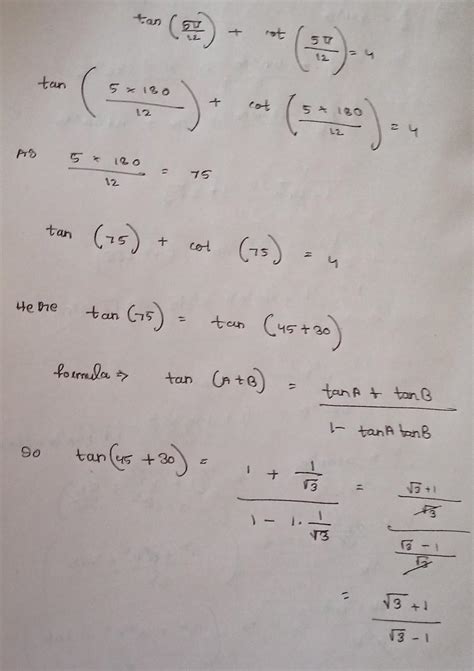 tan (5π/12) + cot (5π/12) = 4
tan (5 × 180 / 12) + cot (5 × 180 / 12) = 4
As 5 × 180 / 12 = 75
tan (75) + cot (75) = 4
Here tan (75) = tan (45 + 30)
formula ⇒ tan (A + B) = tan A + tan B / 1 - tan A tan B
So tan (45 + 30) = 1 + 1/√3 / 1 - 1 . 1/√3 = √3 + 1 / √3 / √3 - 1 / √3
= √3 + 1 / √3 - 1